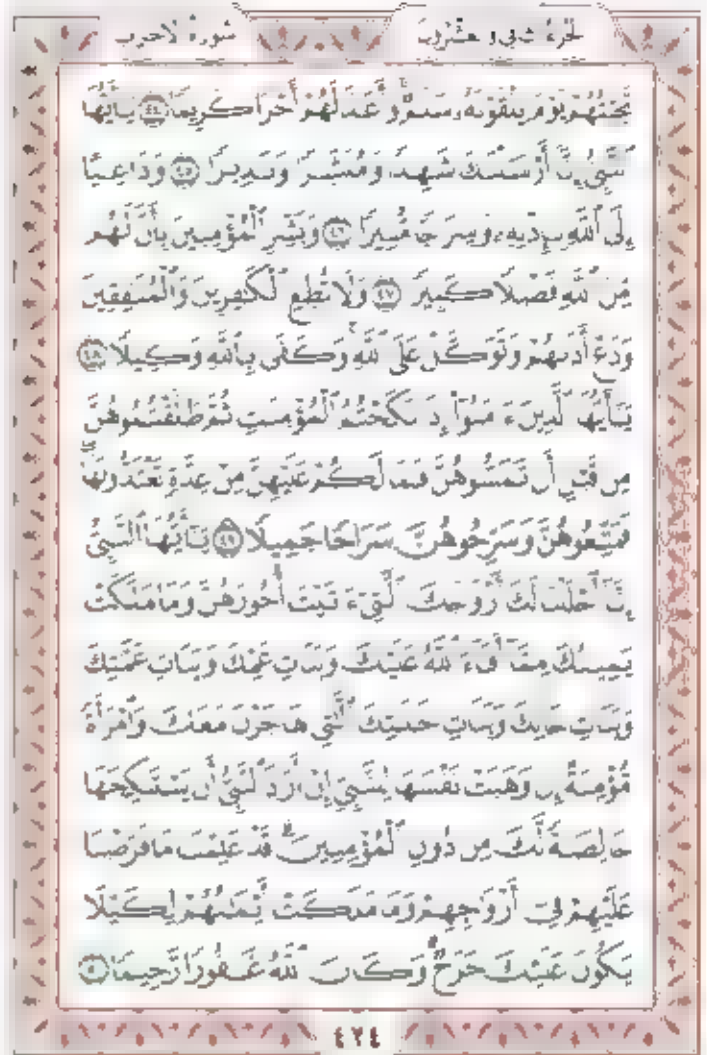 الجزء الثاني والعشرون سورة الأحزاب
تَحِيَّتُهُمْ يَوْمَ يَلْقَوْنَهُ سَلَٰمٌ وَأَعَدَّ لَهُمْ أَجْرًا كَرِيمًا ٤٤ يَٰٓأَيُّهَا
ٱلنَّبِىُّ إِنَّآ أَرْسَلْنَٰكَ شَٰهِدًا وَمُبَشِّرًا وَنَذِيرًا ٤٥ وَدَاعِيًا
إِلَى ٱللَّهِ بِإِذْنِهِۦ وَسِرَاجًا مُّنِيرًا ٤٦ وَبَشِّرِ ٱلْمُؤْمِنِينَ بِأَنَّ لَهُم
مِّنَ ٱللَّهِ فَضْلًا كَبِيرًا ٤٧ وَلَا تُطِعِ ٱلْكَٰفِرِينَ وَٱلْمُنَٰفِقِينَ
وَدَعْ أَذَىٰهُمْ وَتَوَكَّلْ عَلَى ٱللَّهِ وَكَفَىٰ بِٱللَّهِ وَكِيلًا ٤٨
يَٰٓأَيُّهَا ٱلَّذِينَ ءَامَنُوٓا۟ إِذَا نَكَحْتُمُ ٱلْمُؤْمِنَٰتِ ثُمَّ طَلَّقْتُمُوهُنَّ
مِن قَبْلِ أَن تَمَسُّوهُنَّ فَمَا لَكُمْ عَلَيْهِنَّ مِنْ عِدَّةٍ تَعْتَدُّونَهَا
فَمَتِّعُوهُنَّ وَسَرِّحُوهُنَّ سَرَاحًا جَمِيلًا ٤٩ يَٰٓأَيُّهَا ٱلنَّبِىُّ
إِنَّآ أَحْلَلْنَا لَكَ أَزْوَٰجَكَ ٱلَّٰتِىٓ ءَاتَيْتَ أُجُورَهُنَّ وَمَا مَلَكَتْ
يَمِينُكَ مِمَّآ أَفَآءَ ٱللَّهُ عَلَيْكَ وَبَنَاتِ عَمِّكَ وَبَنَاتِ عَمَّٰتِكَ
وَبَنَاتِ خَالِكَ وَبَنَاتِ خَٰلَٰتِكَ ٱلَّٰتِى هَاجَرْنَ مَعَكَ وَٱمْرَأَةً
مُّؤْمِنَةً إِن وَهَبَتْ نَفْسَهَا لِلنَّبِىِّ إِنْ أَرَادَ ٱلنَّبِىُّ أَن يَسْتَنكِحَهَا
خَالِصَةً لَّكَ مِن دُونِ ٱلْمُؤْمِنِينَ قَدْ عَلِمْنَا مَا فَرَضْنَا
عَلَيْهِمْ فِىٓ أَزْوَٰجِهِمْ وَمَا مَلَكَتْ أَيْمَٰنُهُمْ لِكَيْلَا
يَكُونَ عَلَيْكَ حَرَجٌ وَكَانَ ٱللَّهُ غَفُورًا رَّحِيمًا ٥٠
٤٢٤